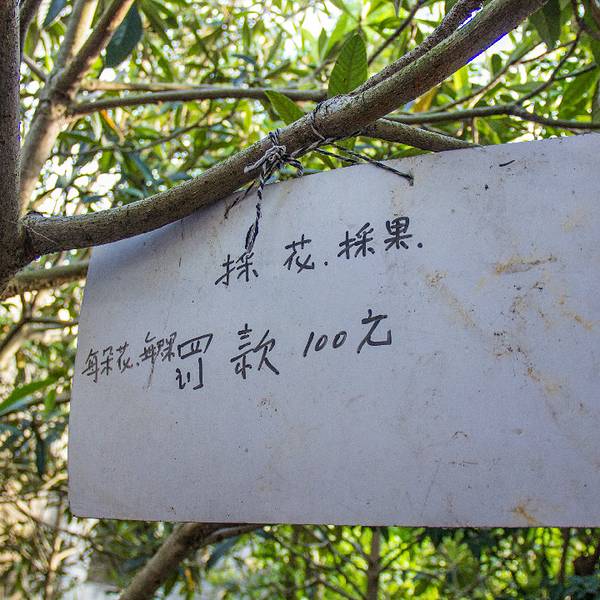 採花.採果.
每朵花.每粿罰款100元